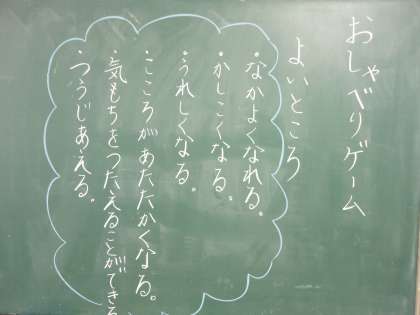 おしゃべりゲーム
よいところ
・なかよくなれる。
・かしこくなる。
・うれしくなる。
・こころがあたたかくなる。
・気もちをつたえることができる
・つうじあえる。